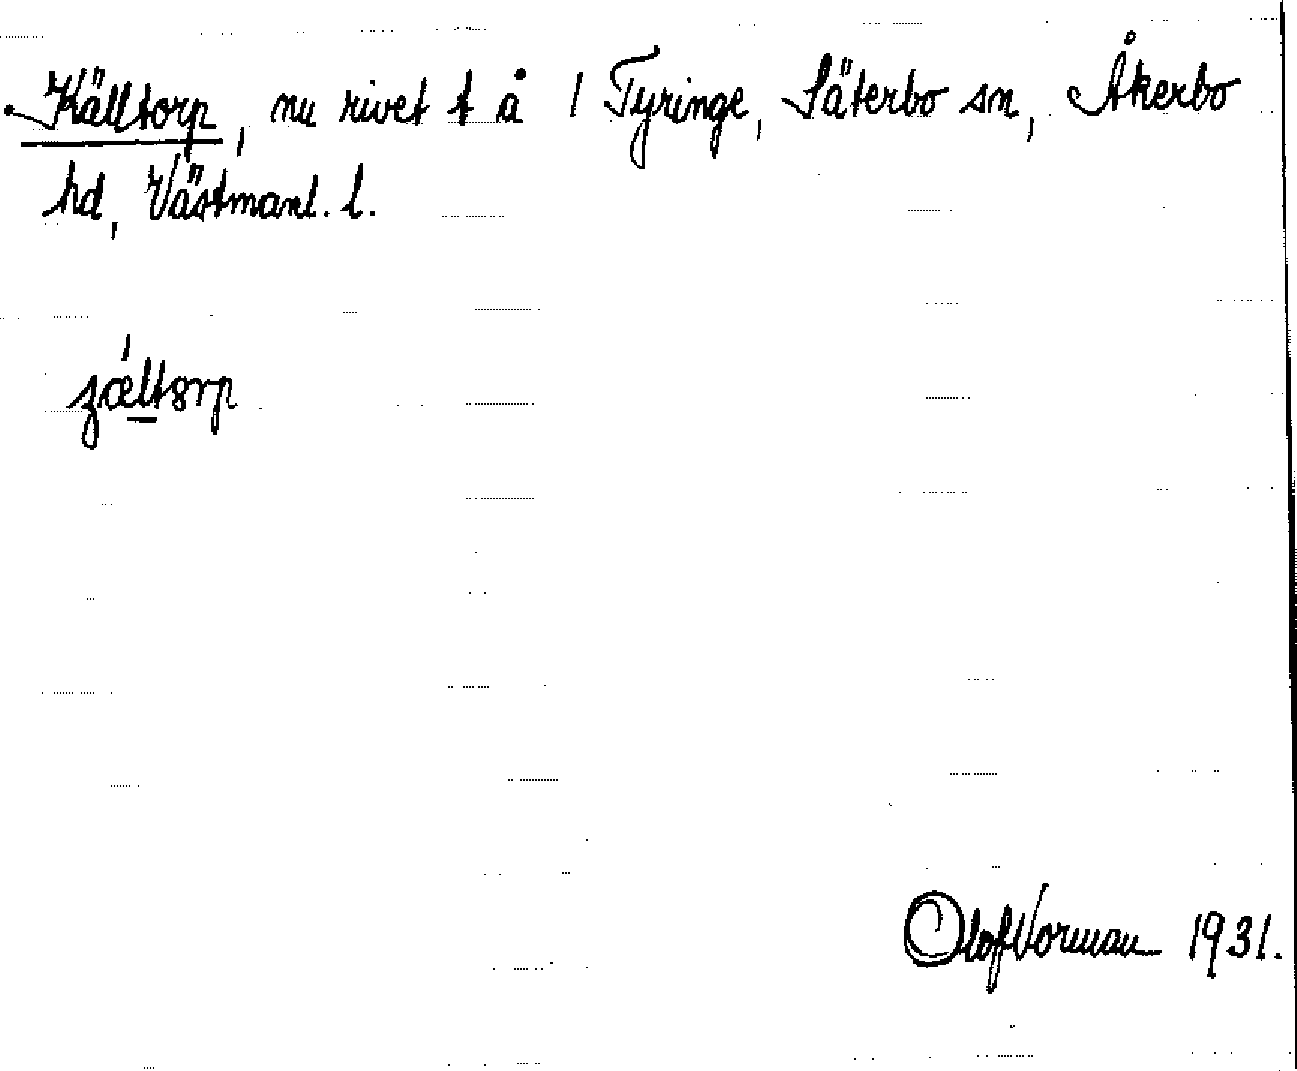 Källtorp, nu rivet t å / Tyringe, Säterbo sn, Åkerbo
hd, Västmanl. l.
Olof Vorman 1931.